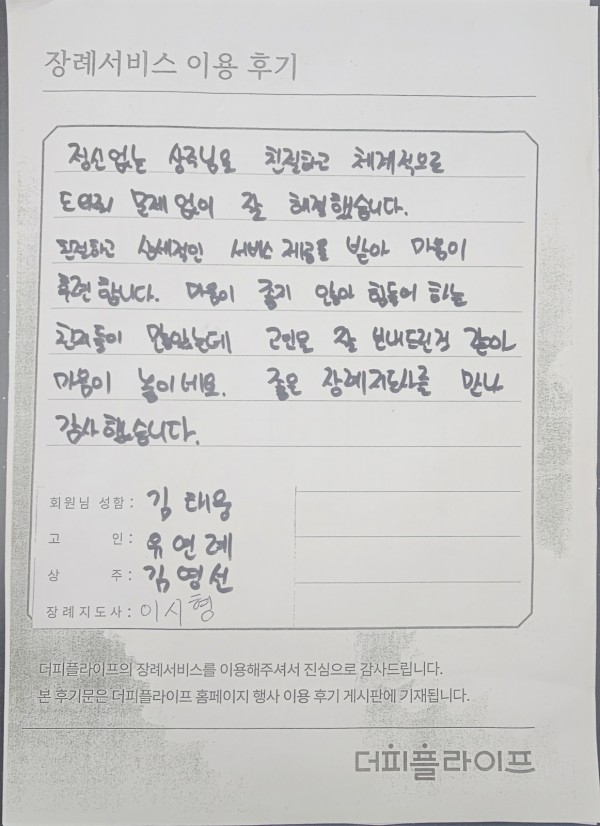 장례서비스 이용 후기
정신없는 상주님요 친절하고 체계적으로
도와줘 문제 없이 잘 해결했습니다.
친절하고 상세적인 서비스 제공을 받아 마음이
후련합니다. 마음이 좋기 않아 힘들어 하는
친지들이 많았는데 고인모 잘 보내드린것 같아
마음이 놓이네요. 좋은 장례지도사를 만나
감사했습니다.
회원님 성함 : 김태용
고 인 : 유연례
상 주 : 김영선
장례지도사 : 이시형
더피플라이프의 장례서비스를 이용해주셔서 진심으로 감사드립니다.
본 후기문은 더피플라이프 홈페이지 행사 이용 후기 게시판에 기재됩니다.
더피플라이프